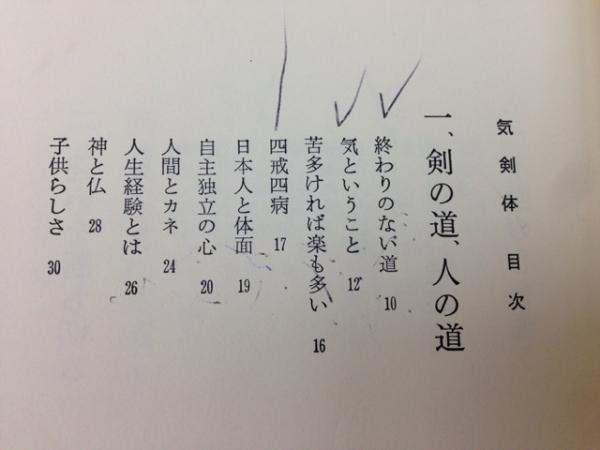 気剣体 目次
一、剣の道、人の道
終わりのない道 10
気ということ 12
苦多ければ楽も多い 16
四戒四病 17
日本人と体面 19
自主独立の心 20
人間とカネ 24
人生経験とは 26
神と仏 28
子供らしさ 30